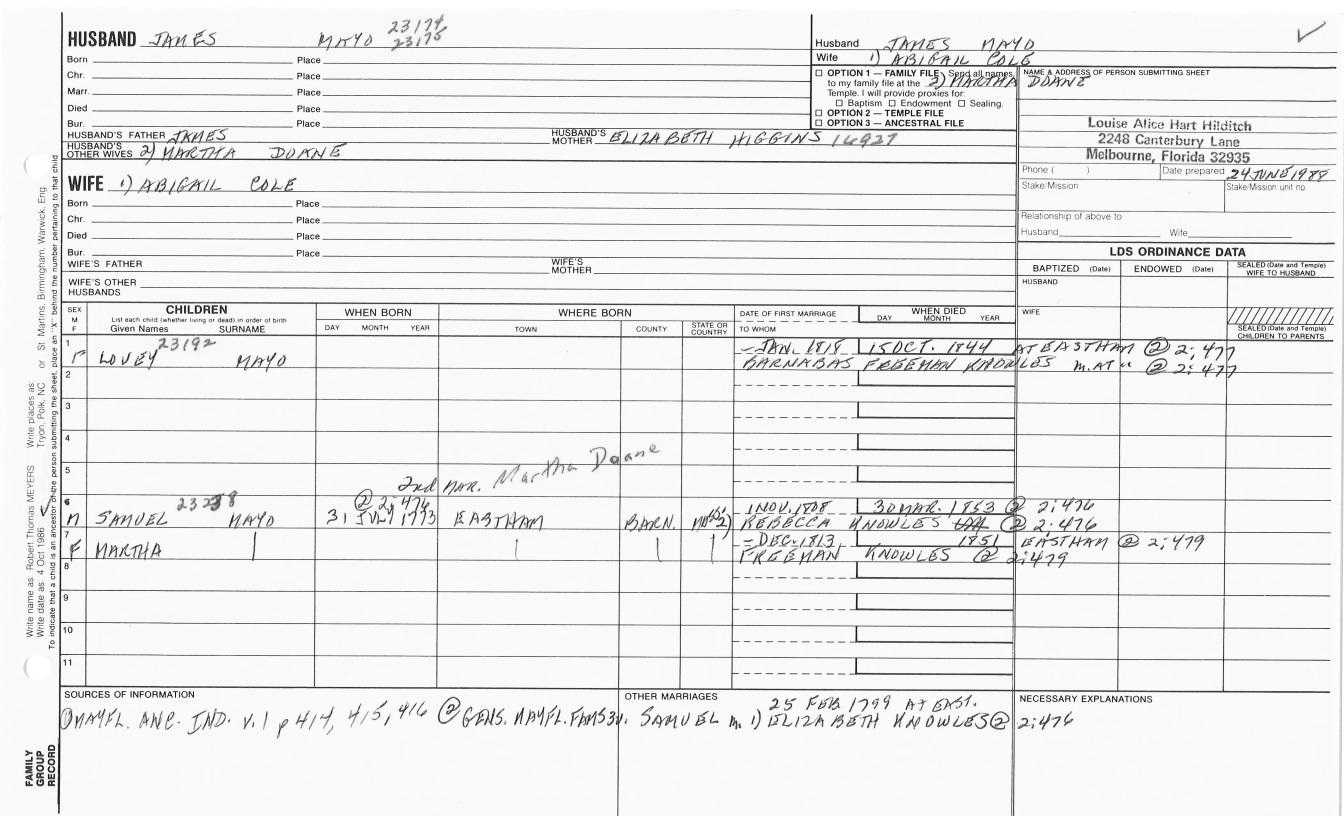 HUSBAND JAMES MAYO 23174
23175
Born Place
Chr. Place
Marr. Place
Died Place
Bur. Place
HUSBAND'S FATHER JAMES HUSBAND'S MOTHER ELIZABETH HIGGINS 16927
HUSBAND'S OTHER WIVES 2) MARTHA DOANE
Husband JAMES MAYO
Wife 1) ABIGAIL COLE
2) MARTHA DOANE
☐ OPTION 1 — FAMILY FILE Send all names
to my family file at the
Temple. I will provide proxies for:
☐ Baptism ☐ Endowment ☐ Sealing.
☐ OPTION 2 — TEMPLE FILE
☐ OPTION 3 — ANCESTRAL FILE
NAME & ADDRESS OF PERSON SUBMITTING SHEET
Louise Alice Hart Hilditch
2248 Canterbury Lane
Melbourne, Florida 32935
Phone ( ) Date prepared 24 JUNE 1988
Stake/Mission Stake/Mission unit no
Relationship of above to
Husband Wife
WIFE 1) ABIGAIL COLE
Born Place
Chr. Place
Died Place
Bur. Place
WIFE'S FATHER WIFE'S MOTHER
WIFE'S OTHER HUSBANDS
LDS ORDINANCE DATA
BAPTIZED (Date) ENDOWED (Date) SEALED (Date and Temple) WIFE TO HUSBAND
HUSBAND
WIFE
SEALED (Date and Temple) CHILDREN TO PARENTS
SEX M F
CHILDREN
List each child (whether living or dead) in order of birth
Given Names SURNAME
WHEN BORN
DAY MONTH YEAR
WHERE BORN
TOWN COUNTY STATE OR COUNTRY
DATE OF FIRST MARRIAGE
TO WHOM
WHEN DIED
DAY MONTH YEAR
1 23192 – JAN. 1818 15 OCT. 1844 AT EASTHAM ② 2:477
F LOVEY MAYO BARNABAS FREEMAN KNOWLES M. AT " ② 2:477
2
3
4
5
2nd MAR. Martha Doane
6 23238 ② 2:476 1 NOV. 1808 30 MAR. 1853 ② 2:476
M SAMUEL MAYO 31 JULY 1773 EASTHAM BARN. REBECCA KNOWLES ② 2:476
7 – DEC. 1813 1851 EASTHAM ② 2:479
F MARTHA FREEMAN KNOWLES ② 2:479
8
9
10
11
SOURCES OF INFORMATION
① MAYFL. ANC. IND. v. 1 p 414, 415, 416 ② GENS. MAYFL. FAMS 3v.
OTHER MARRIAGES
25 FEB 1799 AT EAST.
SAMUEL m. 1) ELIZABETH KNOWLES ② 2:476
NECESSARY EXPLANATIONS
FAMILY GROUP RECORD
Write name as Robert Thomas MEYERS Write places as Tryon, Polk, NC or St Martins, Birmingham, Warwick, Eng.
Write date as 4 Oct 1986
To indicate that a child is an ancestor of the person submitting the sheet, place an "X" behind the number pertaining to that child